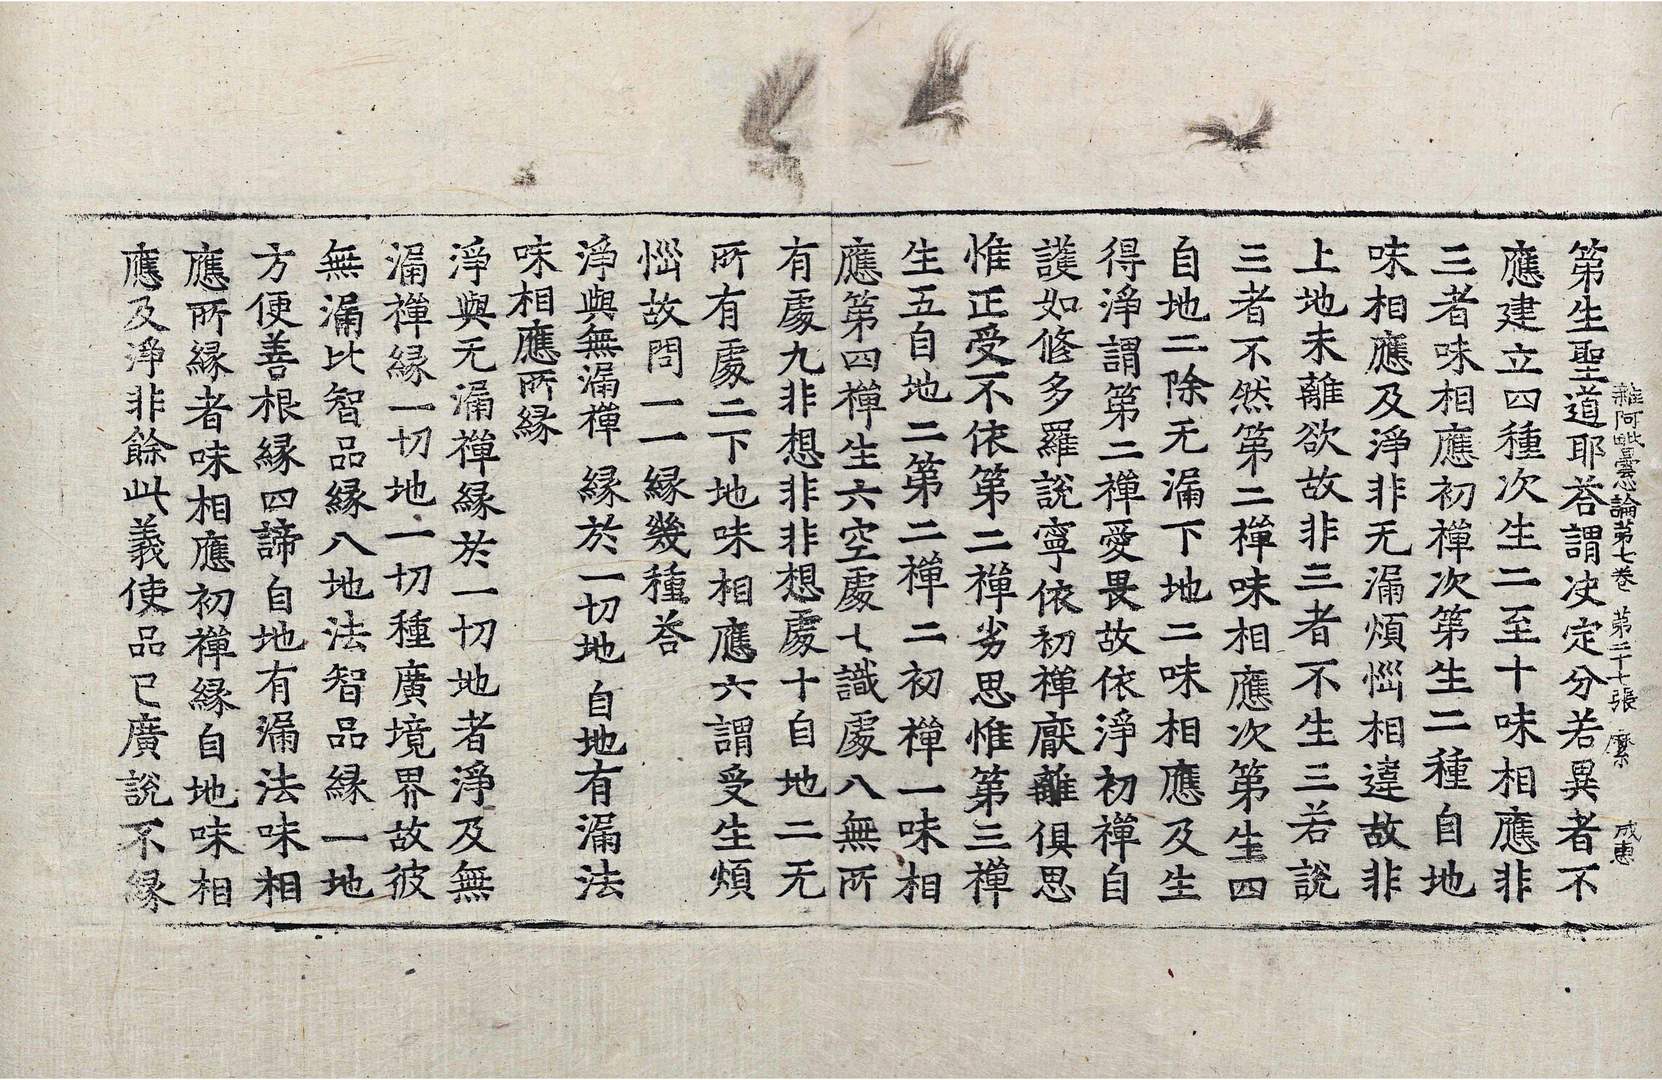 雜阿毗曇心論第七卷 第二十七張 縻 成惠
第生聖道耶荅謂决定分若異者不
應建立四種次生二至十味相應非
三者味相應初禪次第生二種自地
味相應及淨非无漏煩惱相違故非
上地未離欲故非三者不生三若說
三者不然第二禪味相應次第生四
自地二除无漏下地二味相應及生
得淨謂第二禪愛畏故依淨初禪自
護如修多羅說寧依初禪厭離俱思
惟正受不依第二禪劣思惟第三禪
生五自地二第二禪二初禪一味相
應第四禪生六空處七識處八無所
有處九非想非非想處十自地二无
所有處二下地味相應六謂受生煩
惱故問一一緣幾種荅
淨與無漏禪 緣於一切地 自地有漏法
味相應所緣
淨與无漏禪緣於一切地者淨及無
漏禪緣一切地一切種廣境界故彼
無漏比智品緣八地法智品緣一地
方便善根緣四諦自地有漏法味相
應所緣者味相應初禪緣自地味相
應及淨非餘此義使品已廣說不緣